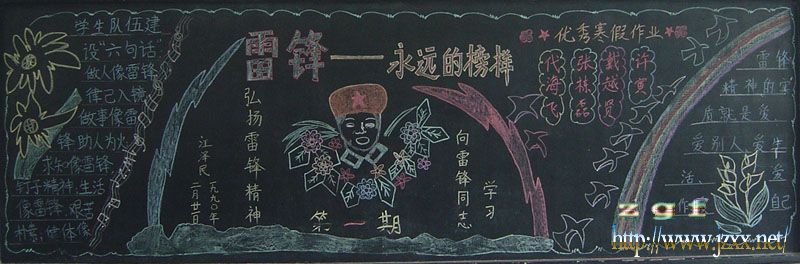 学生队伍建
设"六句话"
做人像雷锋
律己入镜
做事像雷
锋助人为
求知像雷锋
钉子精神,生活
像雷锋,艰苦
朴素,
雷锋——永远的榜样
弘扬雷锋精神
江泽民
一九九〇年
二月廿二日
向雷锋同志
学习
第一期
优秀寒假作业
代海飞
张栋磊
戴越贤
许寅
雷锋
精神的实
质就是爱
爱别人,爱生
活,爱
自己
zgf
http://www.jzxx.net/